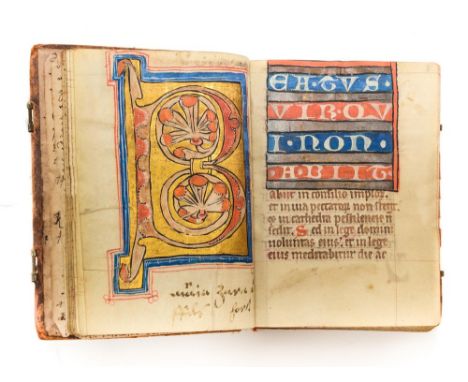 B
EATVS
VIR·QV
I·NON·
ABIIT
abiit in consilio impioȝ
et in uia peccatoꝝ non stetit
et in cathedra pestilencie ñ
sedit. Sed in lege domini
uoluntas eius. et in lege
eius meditabitur die ac